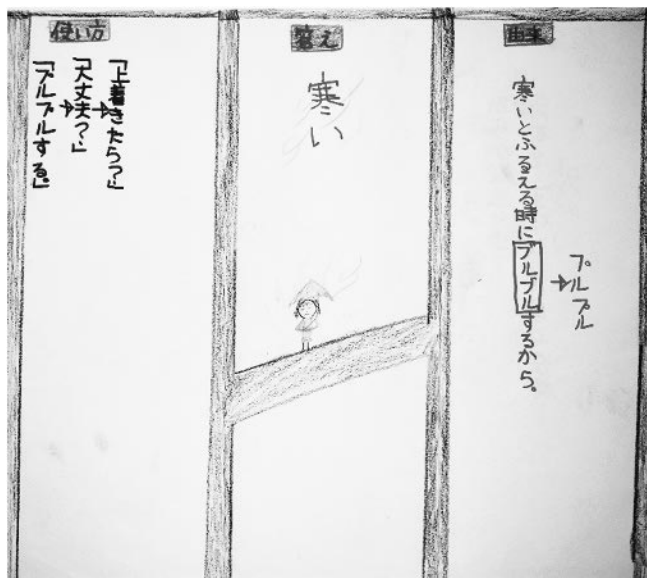 由来
寒いとふるえる時にブルブルするから。
→プルプル
答え
寒い
使い方
「プルプルする。」
→「大丈夫?」
→「上着きたら?」